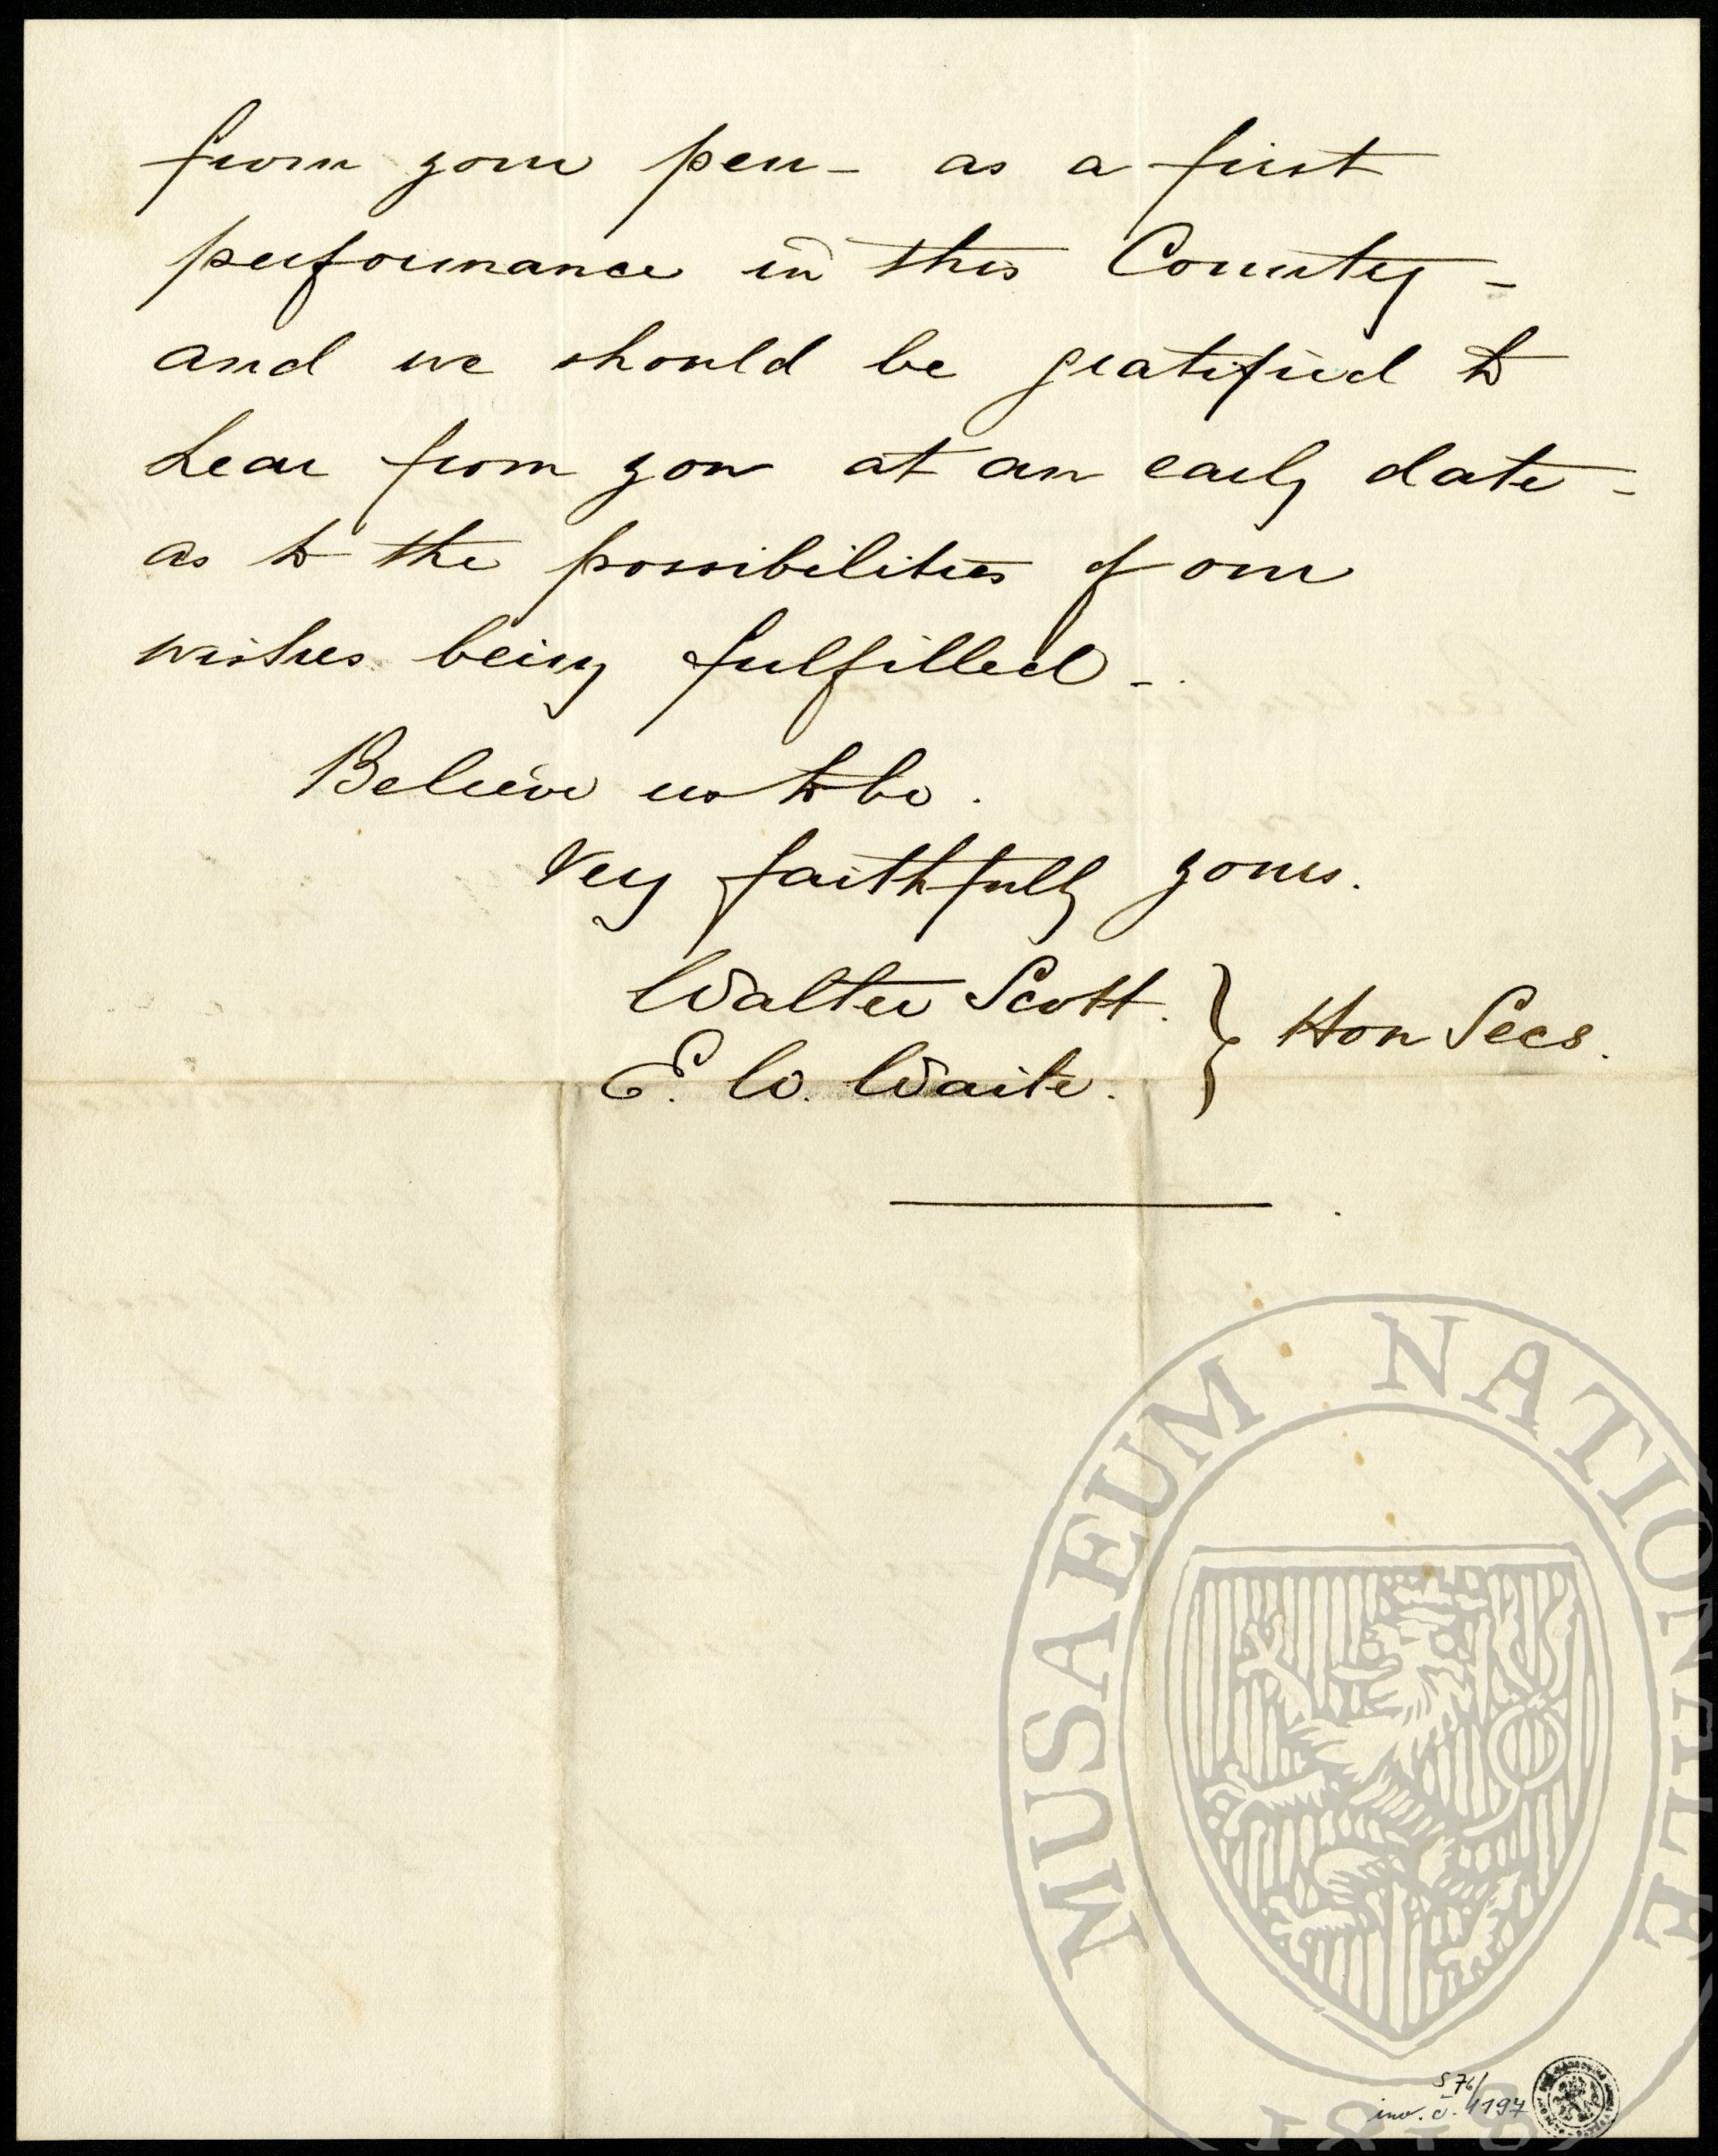 from your pen – as a first
performance in this Country –
and we should be gratified to
hear from you at an early date –
as to the possibilities of our
wishes being fulfilled –.
Believe us to be.
Very faithfully yours.
Walter Scott.
E. W. Waite. } Hon Secs.
MUSAEUM NATIONALE
1818
S 76/
inv. č. 1197